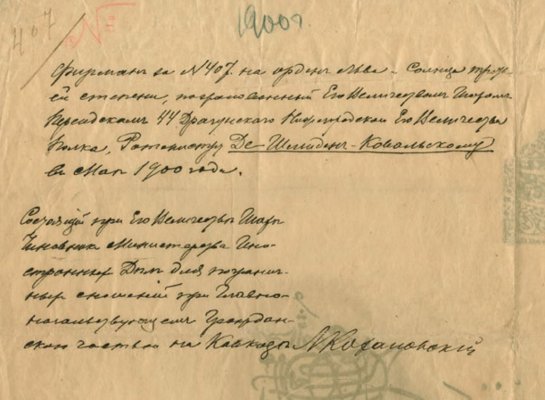 407
1900 г.
Фирманъ за №407. на орденъ Льва и Солнца треть-
ей степени, пожалованный Его Величествомъ Шахомъ
Персидскимъ 44 Драгунскаго Нижегородскаго Его Величества
Полка, Ротмистру Де-Шелиденъ-Ковальскому
въ Маѣ 1900 года.
Состоящій при Его Величествѣ Шахѣ
Чиновникъ Министерства Ино-
странныхъ Дѣлъ для погранич-
ныхъ сношеній при Главно-
начальствующемъ Граждан-
скою частью на Кавказѣ